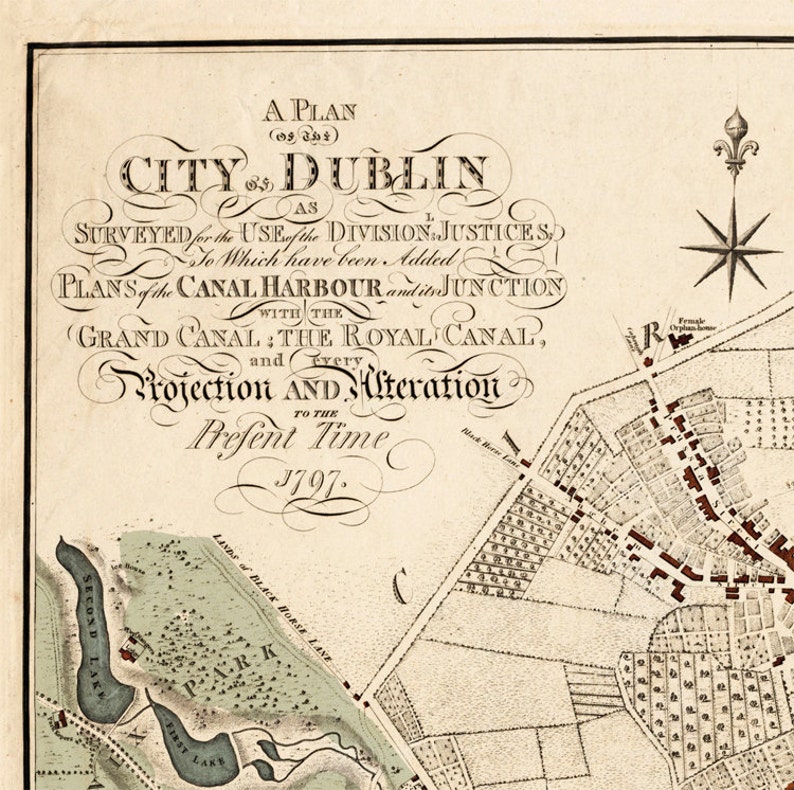 A PLAN
OF THE
CITY OF DUBLIN
AS
SURVEYED for the USE of the DIVISIONL JUSTICES,
To Which have been Added
PLANS of the CANAL HARBOUR and its JUNCTION
WITH THE
GRAND CANAL; THE ROYAL CANAL,
and every
Projection AND Alteration
TO THE
Present Time
1797.
Female
Orphan-house
R
Black Horse Lane
I
C
LANDS of BLACK HORSE LANE
Ice House
SECOND LAKE
PARK
FIRST LAKE
X